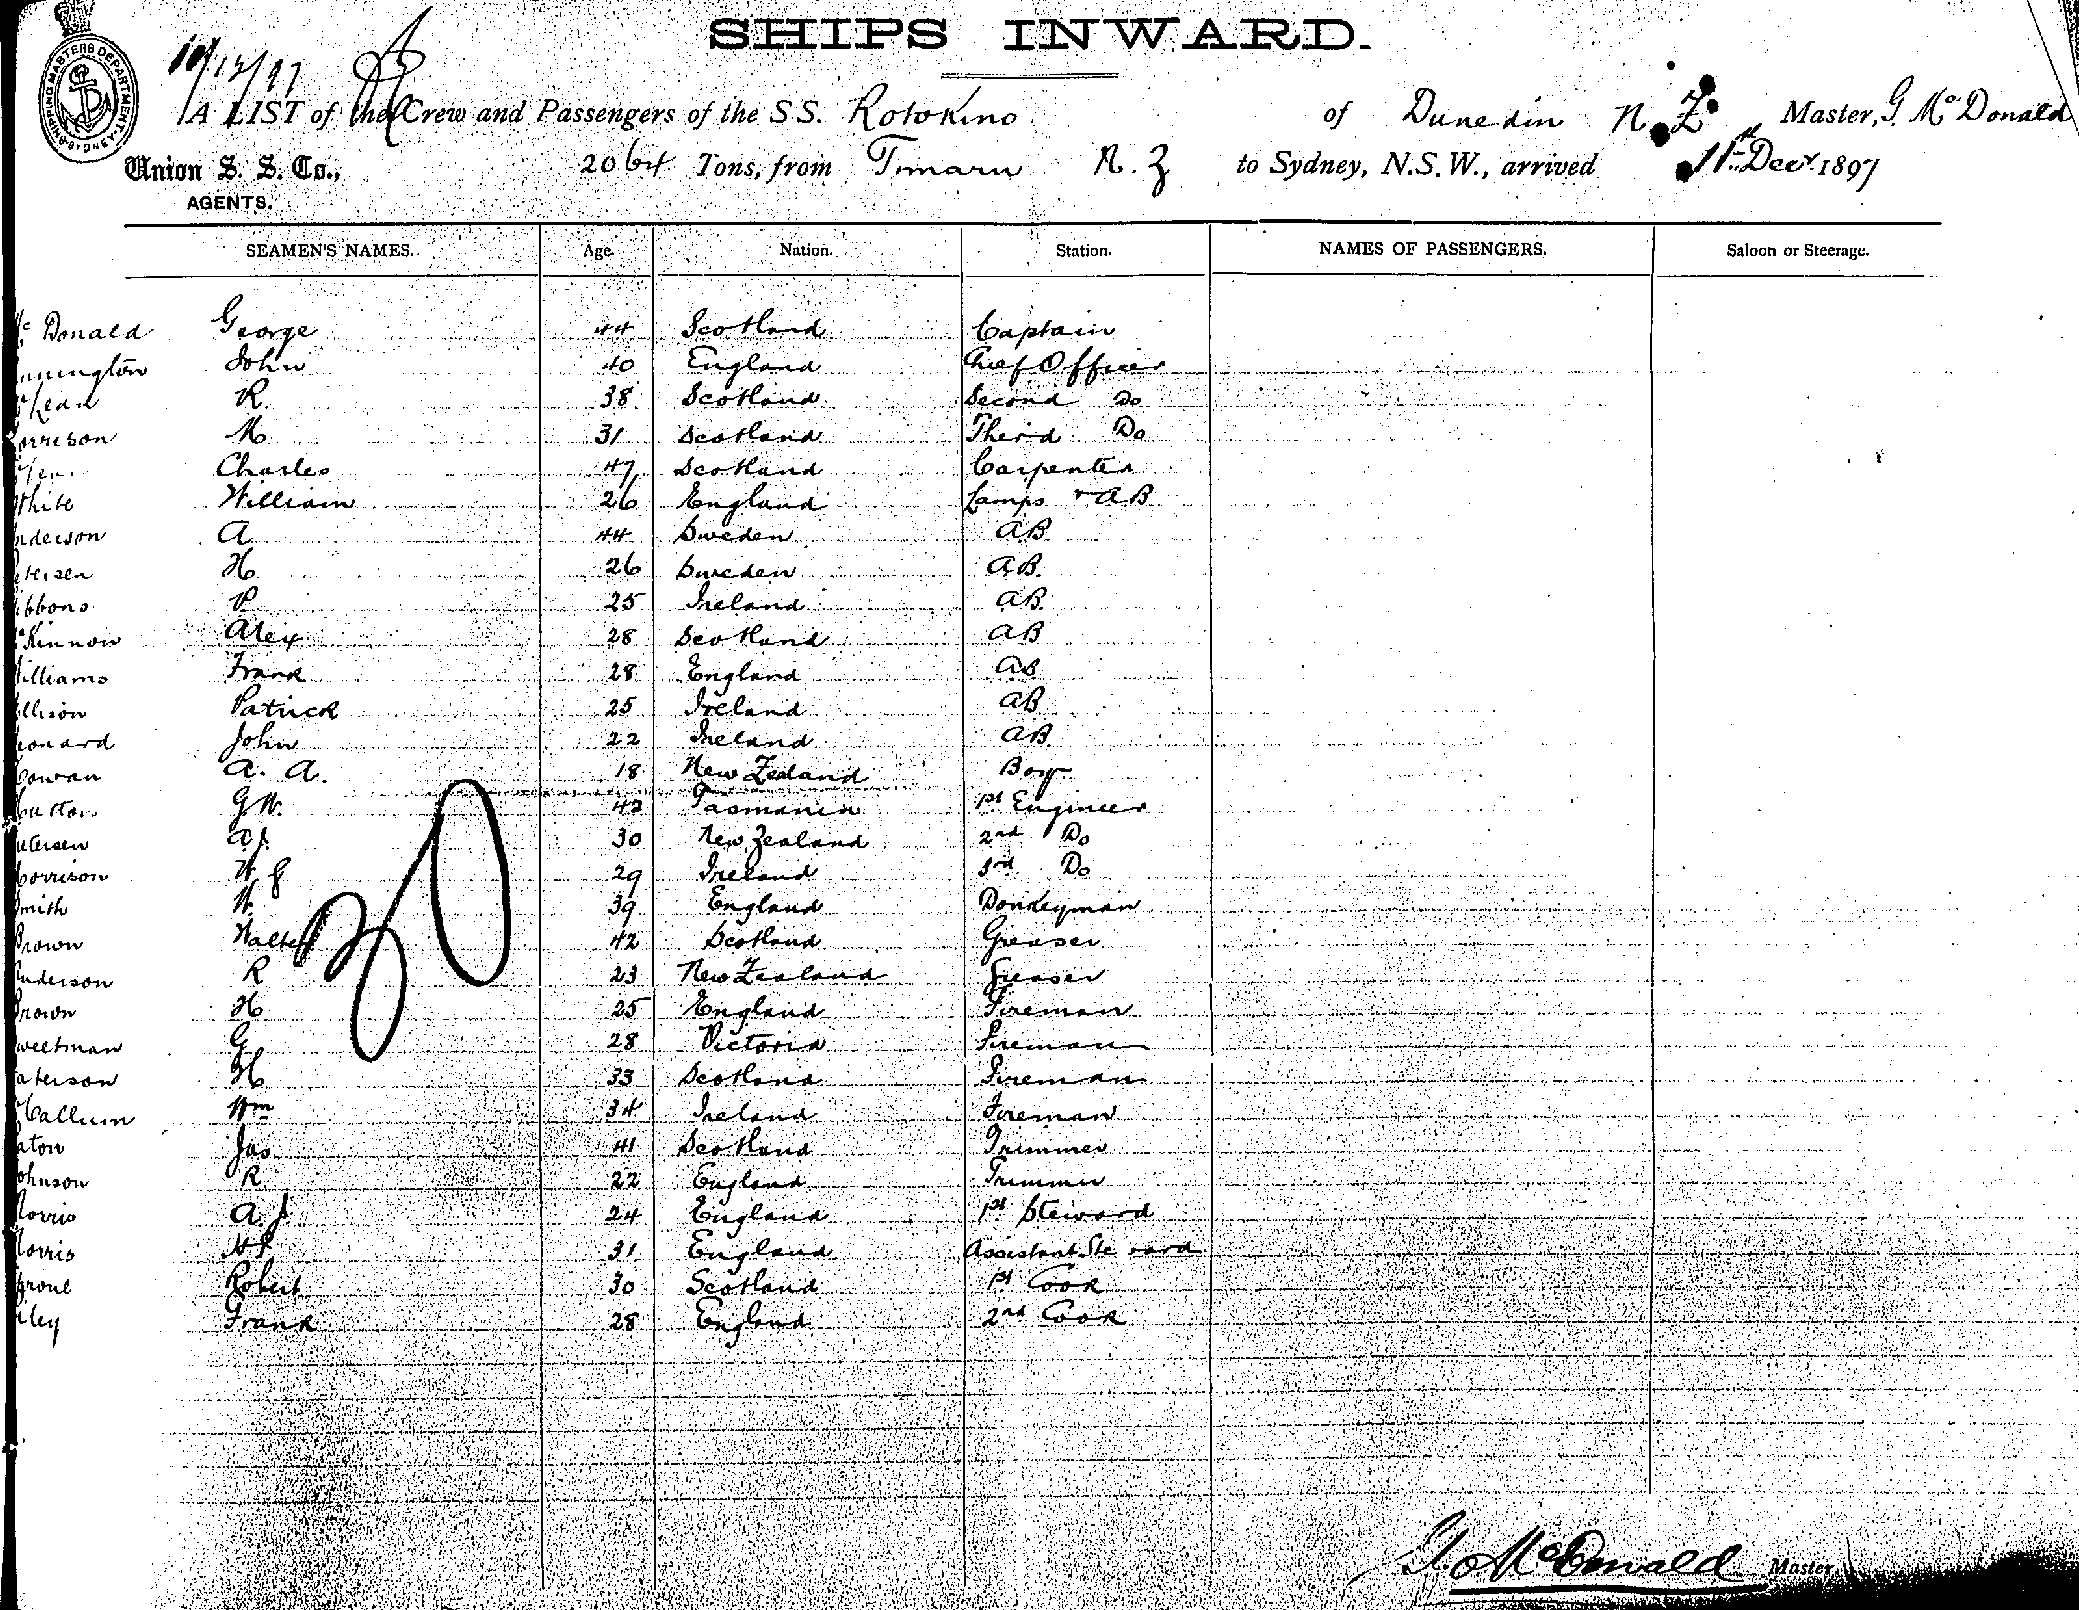 SHIPS INWARD.
SHIPPING MASTERS DEPARTMENT SYDNEY
/12/97
A LIST of the Crew and Passengers of the S S. Rotokino of Dunedin N. Z. Master, G. McDonald
Union S. S. Co., 2064 Tons, from Timaru N. Z to Sydney, N.S.W., arrived 11th Decr. 1897
AGENTS.
SEAMEN'S NAMES. Age. Nation. Station. NAMES OF PASSENGERS. Saloon or Steerage.
Mc Donald George 44 Scotland Captain
nnington John 40 England Chief Officer
Lean R. 38 Scotland Second Do
orrison M. 31 Scotland Therd Do
Charles 47 Scotland Carpenter
White William 26 England Lamps & AB
nderson A 44 Sweden AB
etersen H 26 Sweden AB.
ibbons P 25 Ireland AB
McKinnon Alex 28 Scotland AB
illiams Frank 28 England AB
llison Patrick 25 Ireland AB
eonard John 22 Ireland AB.
Cowan A. A. 18 New Zealand Boy
G W. 42 Tasmania 1st Engineer
etersen A J. 30 New Zealand 2nd Do
orrison W G 29 Ireland 3rd Do
mith W. 39 England Donkeyman
Brown Walter 42 Scotland Greaser
nderson R 23 New Zealand Greaser
Brown H 25 England Fireman
weetman G 28 Victoria Fireman
aterson H 33 Scotland Fireman
Callum Wm 34 Ireland Fireman
aton Jas 41 Scotland Trimmer
ohnson R 22 England Trimmer
orris A. J 24 England 1st Steward
orris 31 England Assistant Steward
proul Robert 30 Scotland 1st Cook
iley Frank 28 England 2nd Cook
30
G. McDonald Master